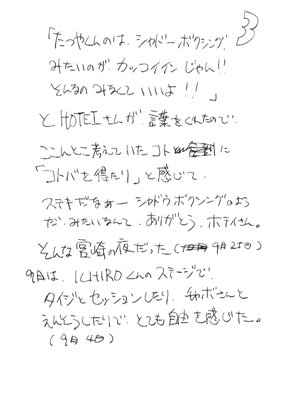 33
「たつやくんのは、シャドーボクシング
みたいのが カッコイインじゃん!!
そんなの みなくて いいよ!!」
と HOTEIさんが 言葉をくれたので
ここんとこ考えていたコト に
「コトバを得たり」と感じて、
ステキだなぁー シャドウボクシングのよう
だ、みたいなんて、ありがとう、ホテイさん。
そんな宮崎の夜だった(9月25日)
9月は、ICHIROくんのステージで
タイジとセッションしたり、チャボさんと
えんそうしたりで、とても自由を感じた。
(9月4日)